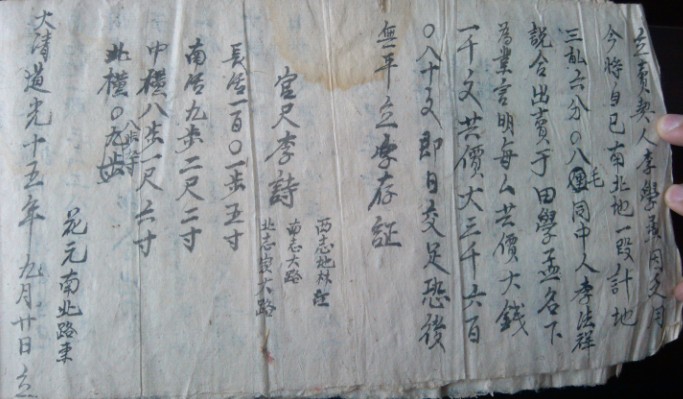 立賣契人李學孟因乏用
今將自己南北地一段計地
三畝六分〇八毛同中人李法群
說合出賣于田學孟名下
為業言明每厶共價大錢
一千文共價大三千六百
〇八十文即日交足恐後
無平立字存証
官尺李詩
西志地林
南志大路
北志 大路
長活一百〇一步五寸
南活九步二尺二寸
中橫八步一尺六寸
北橫〇九步
花元南北路東
大清道光十五年九月廿日立